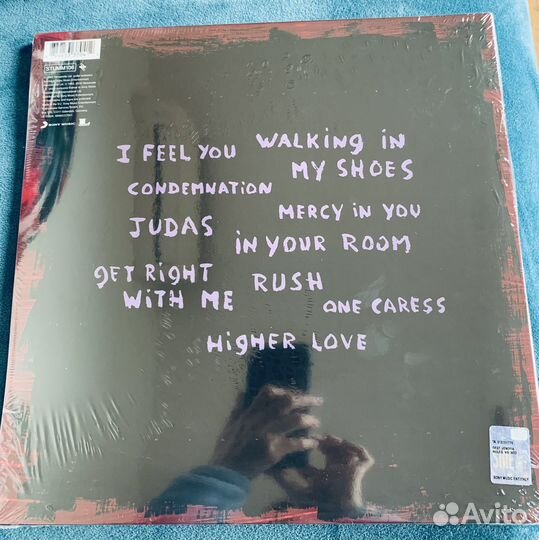 STUMM106
SONY MUSIC
I FEEL YOU
WALKING IN
MY SHOES
CONDEMNATION
MERCY IN YOU
JUDAS
IN YOUR ROOM
gET RigHT
WiTH ME
RUSH
ONE CARESS
HigHER LOVE
SONY MUSIC ENT. ITALY
Avito